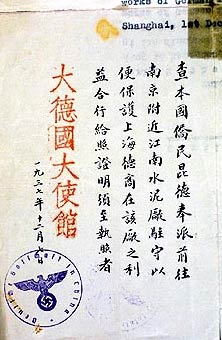 works of German
Shanghai, 1st Dec
查本國僑民昆德奉派前往
南京附近江南水泥廠駐守以
便保護上海德商在該廠之利
益合行給照證明須至執照者
大德國大使館
一九三七年十二月日
Deutsche Botschaft in China